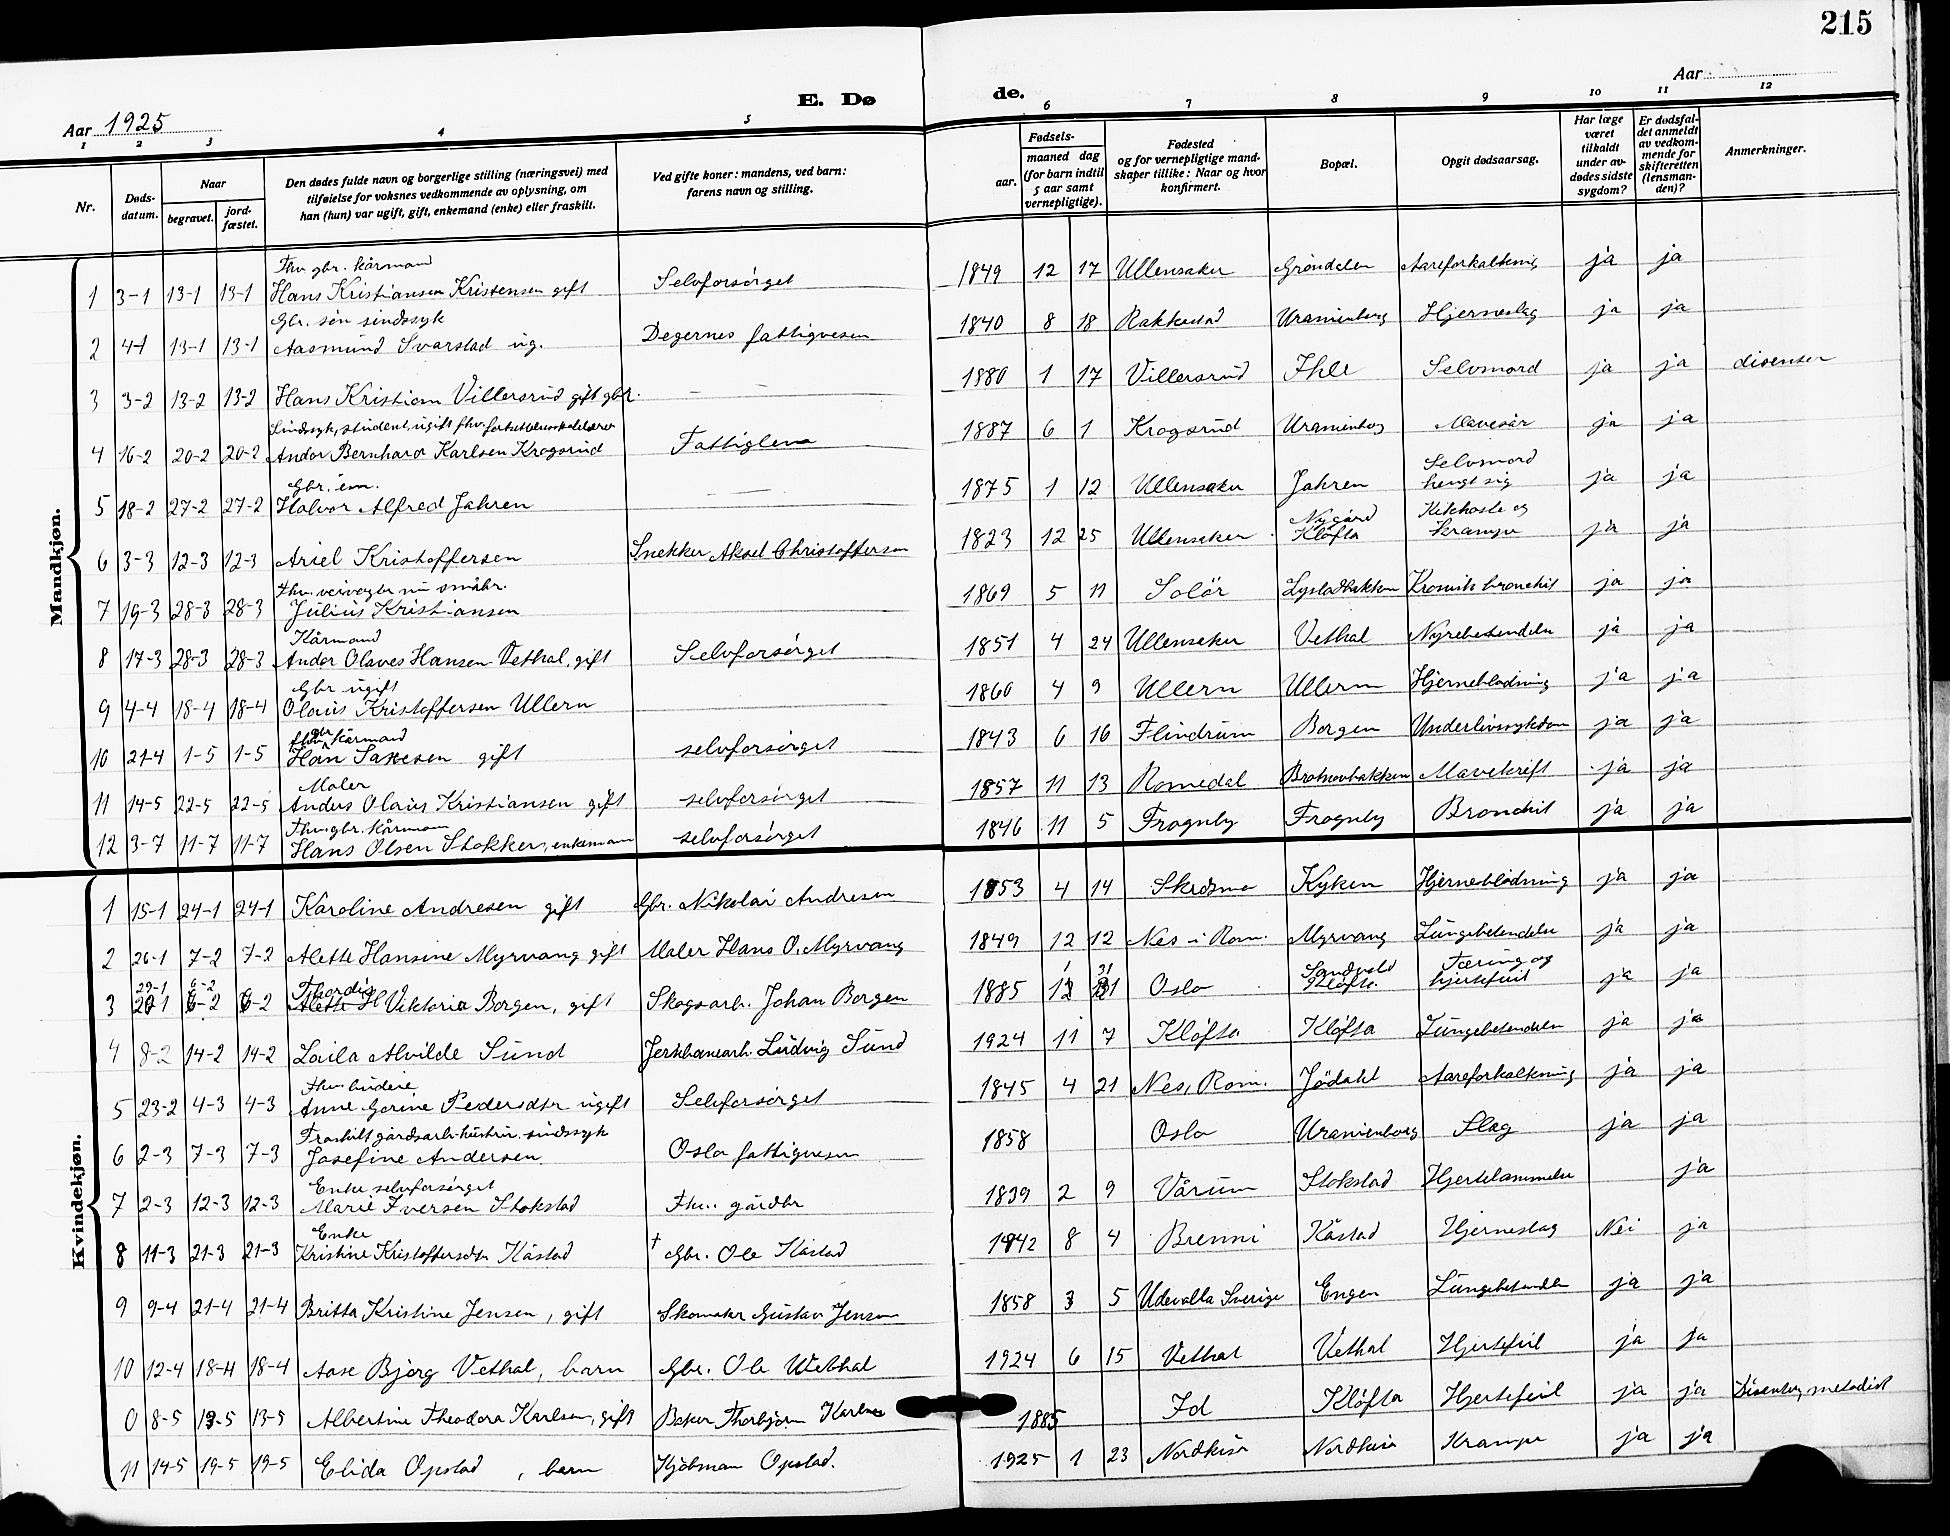 215
E. Dø
de.
Aar 1925
Aar
1 2 3 4 5
6 7 8 9 10 11 12
Nr.
Døds-
datum.
Naar
begravet.
jord-
fæstet.
Den dødes fulde navn og borgerlige stilling (næringsvei) med
tilføielse for voksnes vedkommende av oplysning, om
han (hun) var ugift, gift, enkemand (enke) eller fraskilt.
Ved gifte koner: mandens, ved barn:
farens navn og stilling.
Fødsels-
aar.
maaned dag
(for barn indtil
5 aar samt
vernepligtige).
Fødested
og for vernepligtige mand-
skaper tillike: Naar og hvor
konfirmert.
Bopæl.
Opgit dødsaarsag.
Har læge
været
tilkaldt
under av-
dødes sidste
sygdom?
Er dødsfal-
det anmeldt
av vedkom-
mende for
skifteretten
(lensman-
den)?
Anmerkninger.
Mandkjøn.
Fhv. gbr. kårmand
1 3-1 13-1 13-1 Hans Kristiansen Kristensen gift Selvforsørget 1849 12 17 Ullensaker Grøndalen Aareforkalkning ja ja
Gbr. søn sindssyk
2 4-1 13-1 13-1 Aasmund Svarstad ug. Degernes fattigvesen 1840 8 18 Rakkestad Uranienborg Hjerneslag ja ja
3 3-2 13-2 13-2 Hans Kristian Villersrud gift gbr. — — 1880 1 17 Villersrud Ihle Selvmord ja ja disenter
Sindssyk, student, ugift fhv.
4 16-2 20-2 20-2 Andor Bernhard Karlsen Krogsrud Fattiglem 1887 6 1 Krogsrud Uranienborg Mavesår ja ja
Gbr. em.
5 18-2 27-2 27-2 Halvor Alfred Jahren — — 1875 1 12 Ullensaker Jahren Selvmord hengt sig ja ja
6 3-3 12-3 12-3 Ariel Kristoffersen Snekker Aksel Christoffersen 1823 12 25 Ullensaker Nygård Kløfta Kikhoste og krampe ja ja
Fhv. veivogter nu småbr.
7 19-3 28-3 28-3 Julius Kristiansen 1869 5 11 Solör Lystadbakken Kronisk bronchit ja ja
Kårmand
8 17-3 28-3 28-3 Ander Olaves Hansen Vethal, gift Selvforsørget 1851 4 24 Ullensaker Vethal Nyrebetendelse ja ja
Gbr ugift
9 4-4 18-4 18-4 Olaus Kristoffersen Ullern 1860 4 9 Ullern Ullern Hjerneblødning ja ja
fhv. gbr kårmand
10 21-4 1-5 1-5 Han gift selvforsørget 1843 6 16 Flindrum Borgen Underlivssykdom ja ja
Maler
11 14-5 22-5 22-5 Anders Olaus Kristiansen gift selvforsørget 1857 11 13 Romedal Mavekreft ja ja
Fhv. gbr. kårmann
12 3-7 11-7 11-7 Hans Olsen Stokker, enkemann selvforsørget 1846 11 5 Frogneby Frogneby Bronchit ja ja
Kvindekjøn.
1 15-1 24-1 24-1 Karoline Andresen gift Gbr. Nikolai Andresen 1853 4 14 Skedsmo Kyken Hjerneblødning ja ja
2 26-1 7-2 7-2 Alette Hansine Myrvang gift Maler Hans O. Myrvang 1849 12 12 Nes i Rom. Myrvang Lungebetendelse ja ja
29-1 6-2 Thordis
3 6-2 6-2 Viktoria Borgen, gift Skogsarb. Johan Borgen 1885 1 31 Oslo Sandvold Kløfta Tæring og hjertefeil ja ja
4 8-2 14-2 14-2 Laila Alvilde Sund Jernbanearb. Ludvig Sund 1924 11 7 Kløfta Kløfta Lungebetendelse ja ja
Fhv. budeie
5 23-2 4-3 4-3 Anne Gorine Pedersdtr ugift Selvforsørget 1845 4 21 Nes, Rom. Jödahl Aareforkalkning ja ja
Fraskilt gårdsarb. hustru, sindssyk
6 2-3 7-3 7-3 Josefine Andersen. Oslo fattigvesen 1858 Oslo Uranienborg Slag ja ja
Enke selvforsørget
7 2-3 12-3 12-3 Marie Iversen Stokstad Fhv. gårdbr 1839 2 9 Vårum Stokstad Hjertelammelse ja
Enke
8 11-3 21-3 21-3 Kristine Kristoffersdtr Kåstad † Gbr. Ole Kåstad 1842 8 4 Brenni Kåstad Hjerneslag Nei ja
9 9-4 21-4 21-4 Britta Kristine Jensen, gift Skomaker Gustav Jensen 1858 3 5 Udevalla Sverige Engen Lungebetendelse ja ja
10 12-4 18-4 18-4 Aase Bjørg Vethal, barn Gbr. Ole Wethal 1924 6 15 Vethal Vethal Hjertefeil ja ja
0 8-5 13-5 13-5 Albertine Theodora Karlsen, gift Baker Thorbjørn Karlsen 1885 Id Kløfta Hjertefeil ja ja Disenter, metodist
11 14-5 19-5 19-5 Elida Opstad, barn Kjøbman Opstad. 1925 1 23 Nordkisa Nordkisa Krampe ja ja